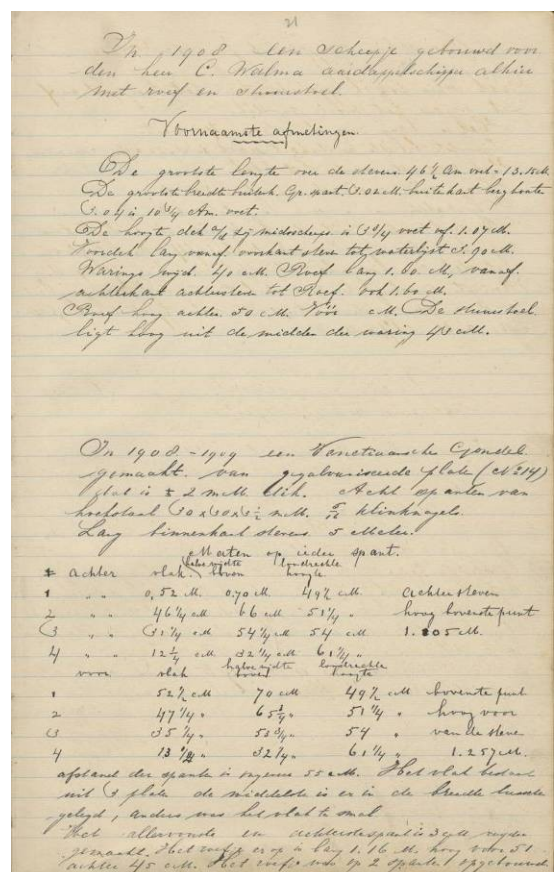 21
In 1908 een scheepje gebouwd voor
den heer C. Walma aardappelschipper alhier
met roef en stuurstoel.
Voornaamste afmetingen.
De grootste lengte over de stevens 46½ Am. voet = 13.15 M.
De grootste breedte buitenk. Gr. spant 3.02 M. buitenkant berghouts
3.04 is 10¾ Am. voet.
De hoogte dek zij midscheeps is 3¾ voet of 1.07 M.
Voordek lang vanaf voorkant steven tot waterlijst 3.90 M.
Warings wijd 40 cM. Roef lang 1.60 M, vanaf
achterkant achtersteven tot Roef. ook 1.60 M.
Roef hoog achter 50 cM. Vóór cM. De stuurstoel
ligt hoog uit de midden der waring 43 cM.
In 1908-1909 een Venetiaansche Gondel
gemaakt van gegalvaniseerde plate (No 14)
dat is ± 2 m.M. dik. Acht spanten van
hoekstaal 30x30x3½ m.M. klinknagels.
Lang binnenkant stevens 5 Meter.
Maten op ieder spant.
achter vlak. halve wijdte boven loodrechte hoogte
1 " " 0,52 M. 0.70 M 49½ cM. achtersteven
2 " " 46¼ cM 66 cM 51¼ " hoog bovenste punt
3 " " 31¼ cM 54¼ cM 54 cM 1.205 M.
4 " " 12¼ cM. 32¼ cM 61¼ "
voor vlak halve wijdte boven loodrechte hoogte
1 52½ cM 70 cM 49½ cM bovenste punt
2 47¼ " 65¾ " 51¼ " hoog voor
3 35¼ " 53¾ " 54 " van de steven
4 13½ " 32¼ " 61¼ " 1.257 M.
afstand der spanten is ongeveer 55 cM. Het vlak bestaat
uit 3 plate de middelste is er in de breedte tusschen
gelegd, anders was het vlak te smal
Het allervoorste en achterste spant is 3 cM
gemaakt. Het roefje er op is lang 1.16 M. hoog voor 51
achter 45 cM. Het roefje was op 2 spanten opgebouwd